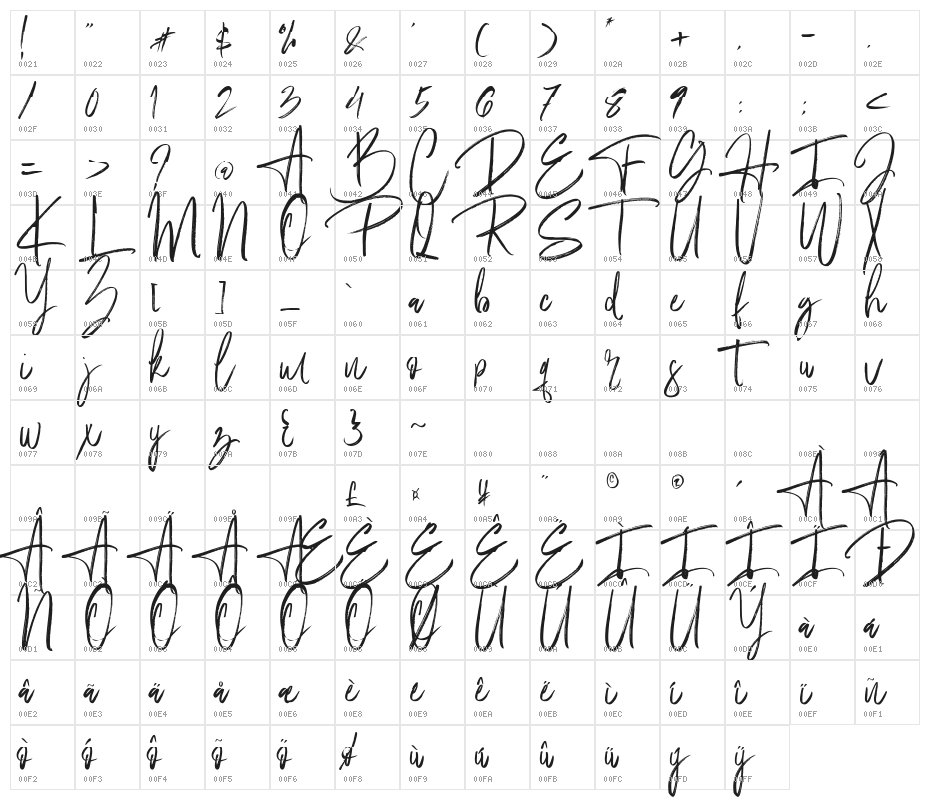 ! " # $ % & ' ( ) * + , - .
0021 0022 0023 0024 0025 0026 0027 0028 0029 002A 002B 002C 002D 002E
/ 0 1 2 3 4 5 6 7 8 9 : ; <
002F 0030 0031 0032 0033 0034 0035 0036 0037 0038 0039 003A 003B 003C
= > ? @ A B C D E F G H I J
003D 003E 003F 0040 0041 0042 0043 0044 0045 0046 0047 0048 0049 004A
K L M N O P Q R S T U V W X
004B 004C 004D 004E 004F 0050 0051 0052 0053 0054 0055 0056 0057 0058
Y Z [ ] _ ` a b c d e f g h
0059 005A 005B 005D 005F 0060 0061 0062 0063 0064 0065 0066 0067 0068
i j k l m n o p q r s t u v
0069 006A 006B 006C 006D 006E 006F 0070 0071 0072 0073 0074 0075 0076
w x y z { } ~
0077 0078 0079 007A 007B 007D 007E 0080 0088 008A 008B 008C 008E 0098
£ ¤ ¥ ¨ © ® ´ À Á
009A 009B 009C 009E 009F 00A3 00A4 00A5 00A8 00A9 00AE 00B4 00C0 00C1
Â Ã Ä Å Æ È É Ê Ë Ì Í Î Ï Ð
00C2 00C3 00C4 00C5 00C6 00C8 00C9 00CA 00CB 00CC 00CD 00CE 00CF 00D0
Ñ Ò Ó Ô Õ Ö Ø Ù Ú Û Ü Ý à á
00D1 00D2 00D3 00D4 00D5 00D6 00D8 00D9 00DA 00DB 00DC 00DD 00E0 00E1
â ã ä å æ è é ê ë ì í î ï ñ
00E2 00E3 00E4 00E5 00E6 00E8 00E9 00EA 00EB 00EC 00ED 00EE 00EF 00F1
ò ó ô õ ö ø ù ú û ü ý ÿ
00F2 00F3 00F4 00F5 00F6 00F8 00F9 00FA 00FB 00FC 00FD 00FF